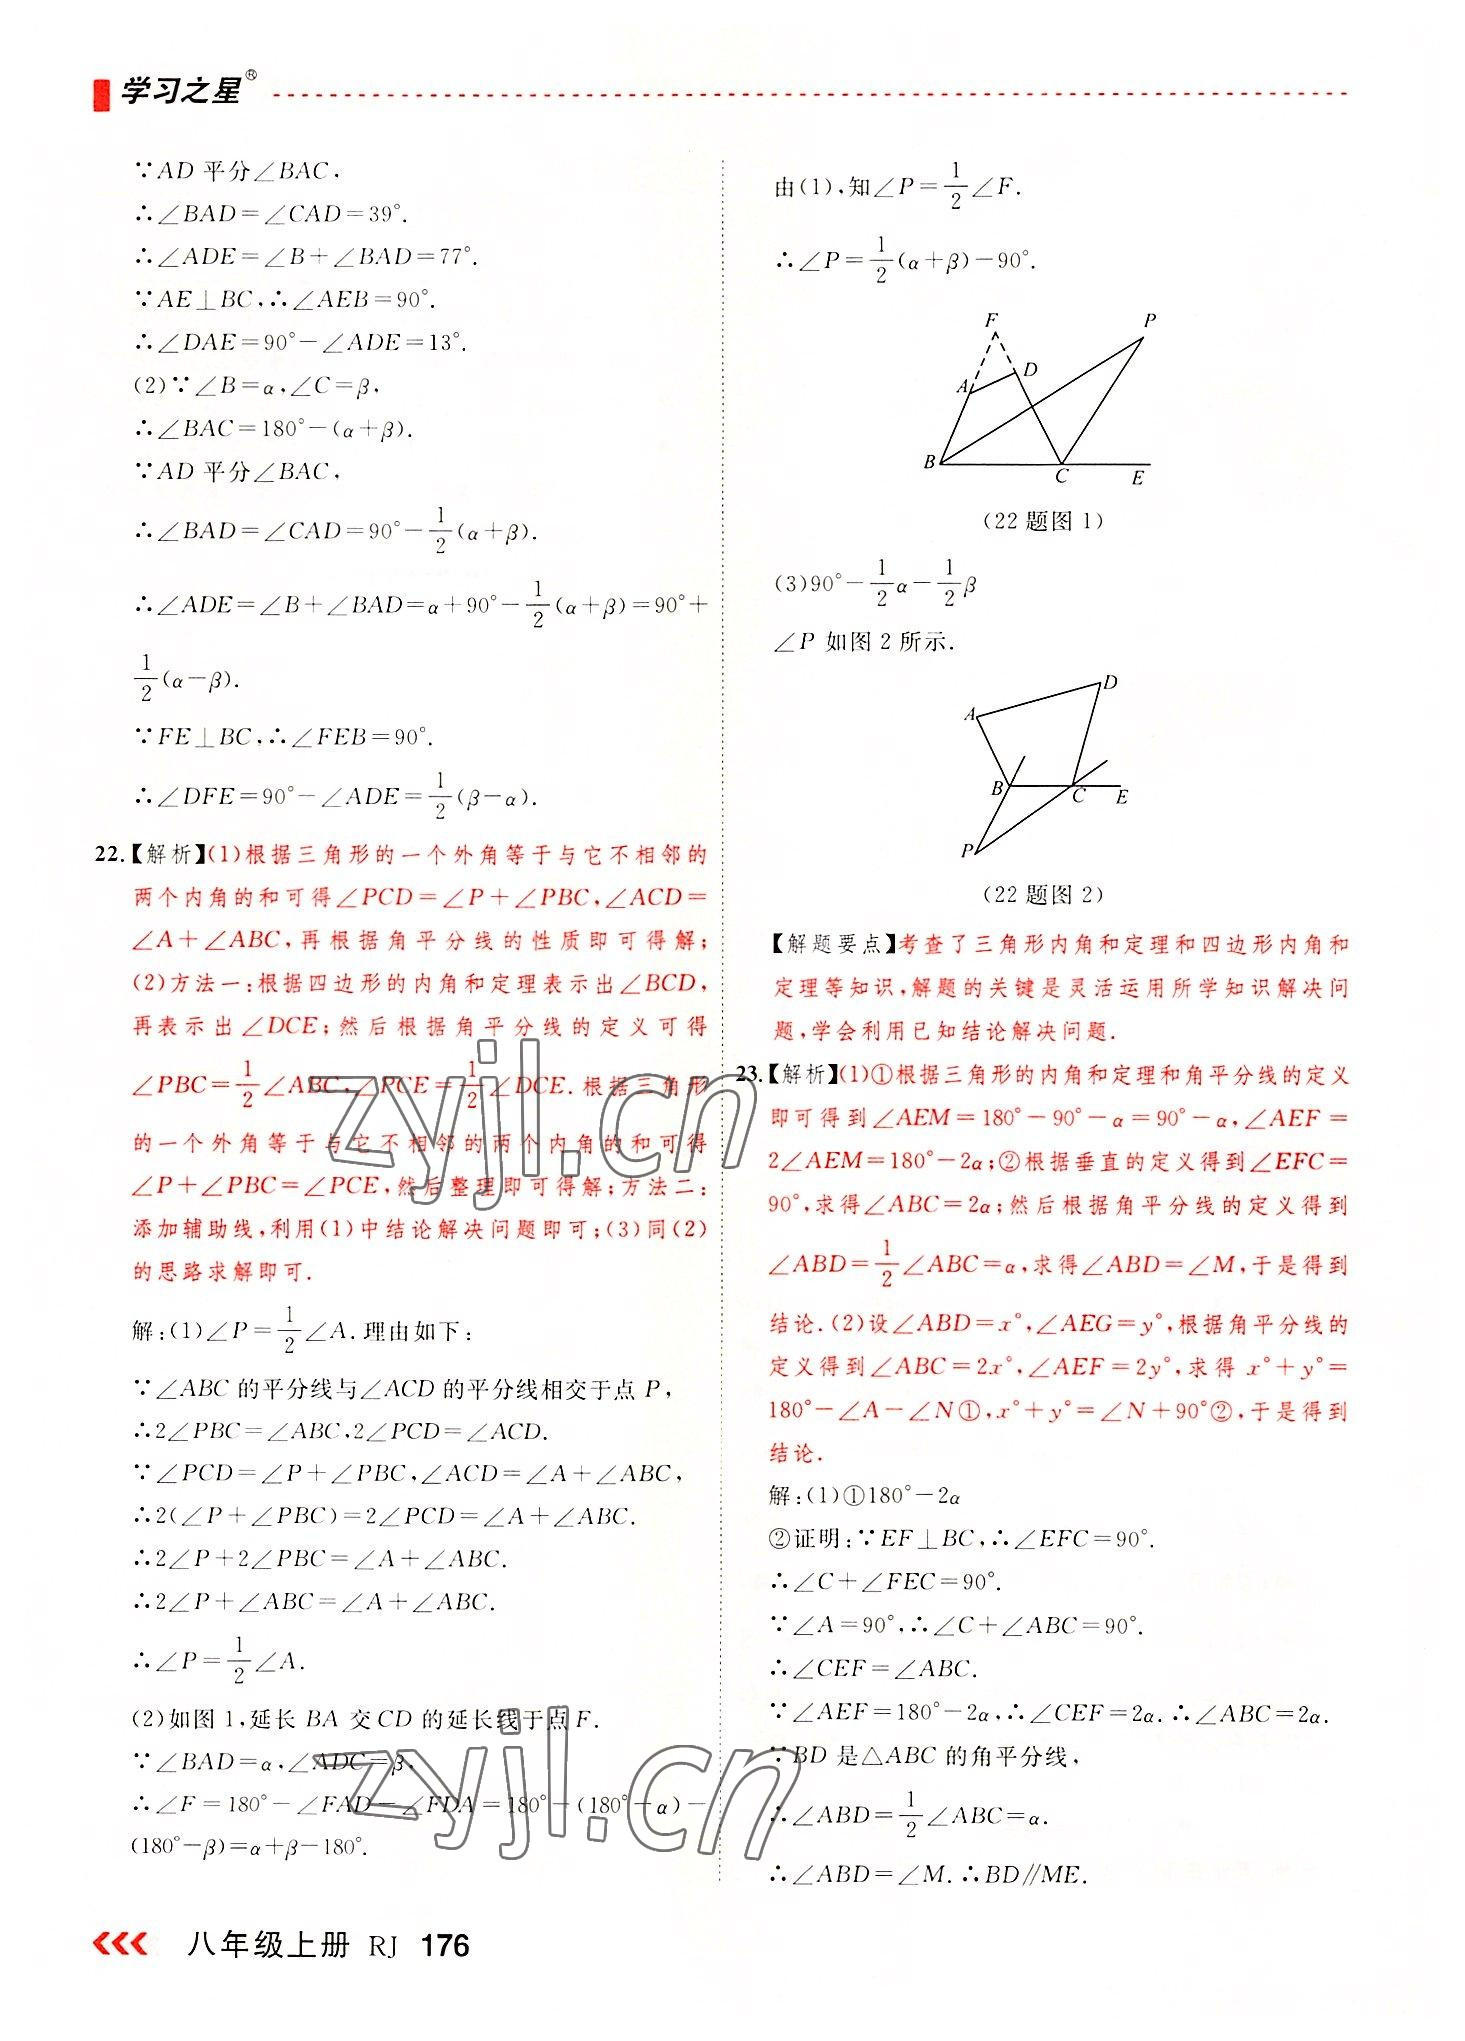 学习之星®
∵AD平分∠BAC,
∴∠BAD=∠CAD=39°.
∴∠ADE=∠B+∠BAD=77°.
∵AE⊥BC,∴∠AEB=90°.
∴∠DAE=90°-∠ADE=13°.
(2)∵∠B=α,∠C=β,
∴∠BAC=180°-(α+β).
∵AD平分∠BAC,
∴∠BAD=∠CAD=90°-1/2(α+β).
∴∠ADE=∠B+∠BAD=α+90°-1/2(α+β)=90°+
1/2(α-β).
∵FE⊥BC,∴∠FEB=90°.
∴∠DFE=90°-∠ADE=1/2(β-α).
22.【解析】(1)根据三角形的一个外角等于与它不相邻的
两个内角的和可得∠PCD=∠P+∠PBC,∠ACD=
∠A+∠ABC,再根据角平分线的性质即可得解;
(2)方法一:根据四边形的内角和定理表示出∠BCD,
再表示出∠DCE;然后根据角平分线的定义可得
∠PBC=1/2∠ABC,∠PCE=1/2∠DCE.根据三角形
的一个外角等于与它不相邻的两个内角的和可得
∠P+∠PBC=∠PCE,然后整理即可得解;方法二:
添加辅助线,利用(1)中结论解决问题即可;(3)同(2)
的思路求解即可.
解:(1)∠P=1/2∠A.理由如下:
∵∠ABC的平分线与∠ACD的平分线相交于点P,
∴2∠PBC=∠ABC,2∠PCD=∠ACD.
∵∠PCD=∠P+∠PBC,∠ACD=∠A+∠ABC,
∴2(∠P+∠PBC)=2∠PCD=∠A+∠ABC.
∴2∠P+2∠PBC=∠A+∠ABC.
∴2∠P+∠ABC=∠A+∠ABC.
∴∠P=1/2∠A.
(2)如图1,延长BA交CD的延长线于点F.
∵∠BAD=α,∠ADC=β,
∴∠F=180°-∠FAD-∠FDA=180°-(180°-α)-
(180°-β)=α+β-180°.
由(1),知∠P=1/2∠F.
∴∠P=1/2(α+β)-90°.
F
P
D
A
B
C
E
(22题图1)
(3)90°-1/2α-1/2β
∠P如图2所示.
D
A
B
C
E
P
(22题图2)
【解题要点】考查了三角形内角和定理和四边形内角和
定理等知识,解题的关键是灵活运用所学知识解决问
题,学会利用已知结论解决问题.
23.【解析】(1)①根据三角形的内角和定理和角平分线的定义
即可得到∠AEM=180°-90°-α=90°-α,∠AEF=
2∠AEM=180°-2α;②根据垂直的定义得到∠EFC=
90°,求得∠ABC=2α;然后根据角平分线的定义得到
∠ABD=1/2∠ABC=α,求得∠ABD=∠M,于是得到
结论.(2)设∠ABD=x°,∠AEG=y°,根据角平分线的
定义得到∠ABC=2x°,∠AEF=2y°,求得 x°+y°=
180°-∠A-∠N①,x°+y°=∠N+90°②,于是得到
结论.
解:(1)①180°-2α
②证明:∵EF⊥BC,∴∠EFC=90°.
∴∠C+∠FEC=90°.
∵∠A=90°,∴∠C+∠ABC=90°.
∴∠CEF=∠ABC.
∵∠AEF=180°-2α,∴∠CEF=2α.∴∠ABC=2α.
∵BD是△ABC的角平分线,
∴∠ABD=1/2∠ABC=α.
∴∠ABD=∠M.∴BD∥ME.
zyjl.cn
zyjl.cn
八年级上册 RJ 176